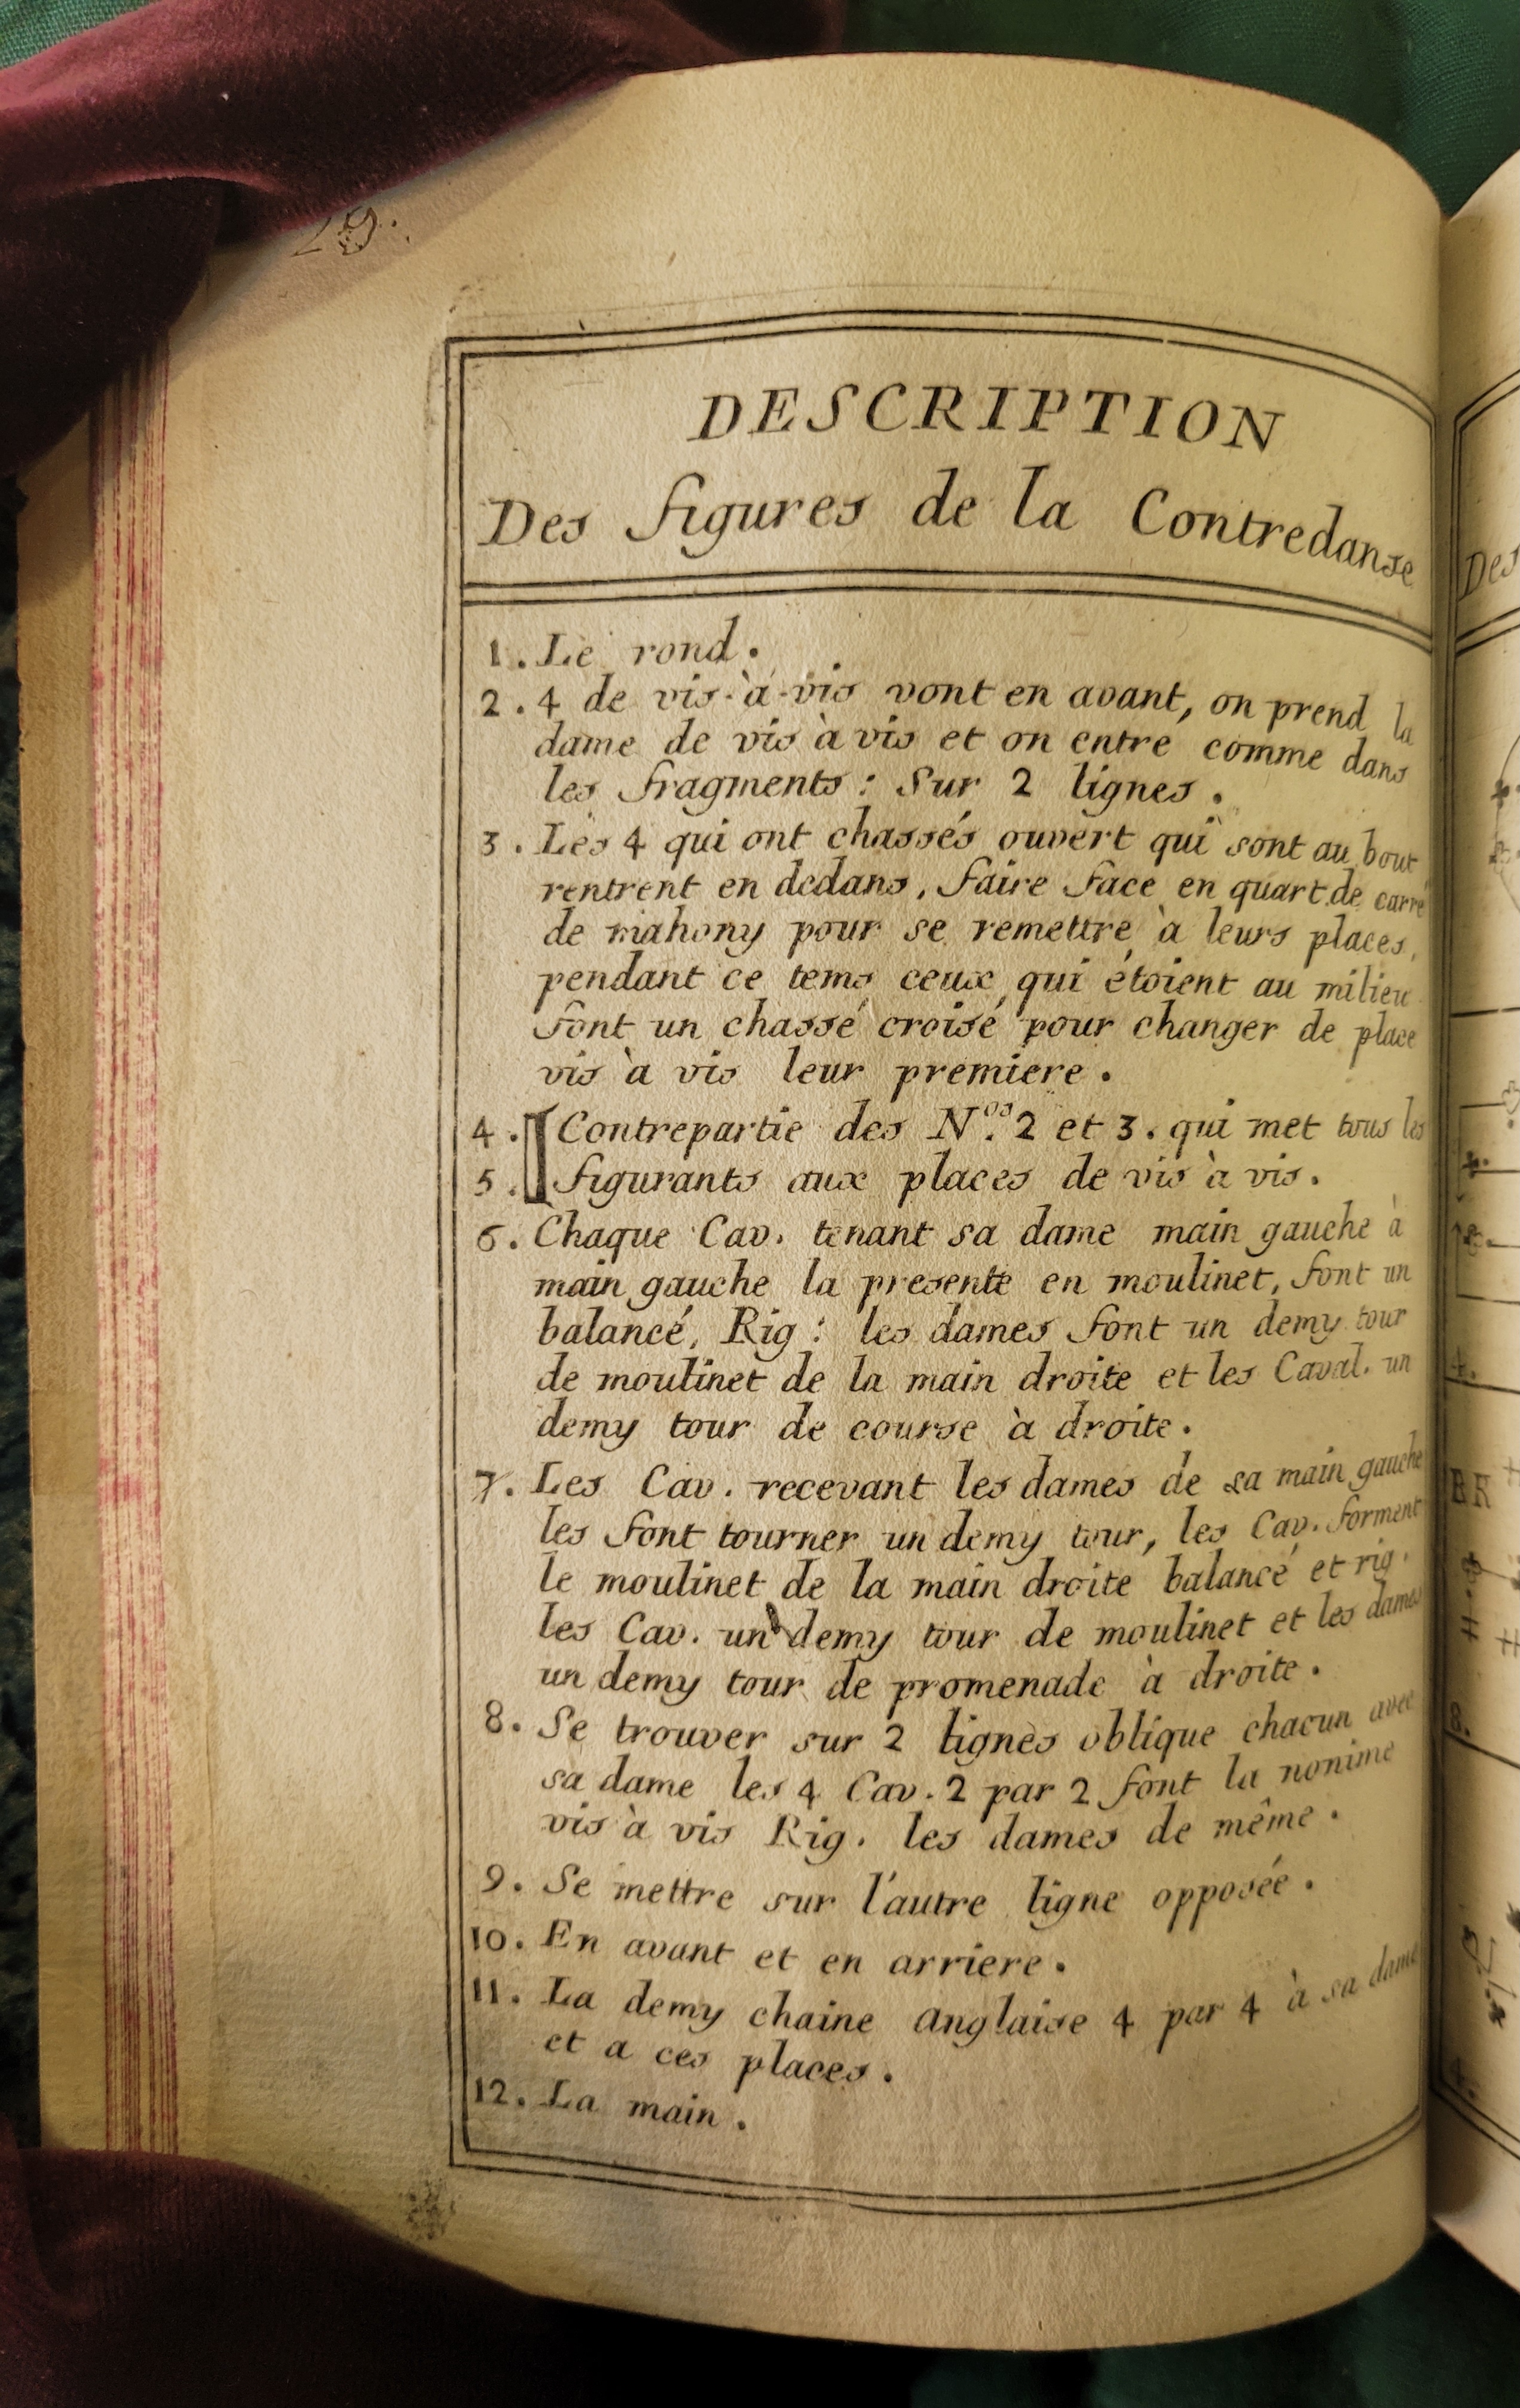 29.
DESCRIPTION
Des figures de la Contredanse
1. Le rond.
2. 4 de vis-à-vis vont en avant, on prend la
dame de vis à vis et on entre comme dans
les fragments : Sur 2 lignes.
3. Les 4 qui ont chassés ouvert qui sont au bout
rentrent en dedans, faire face en quart de carré
de mahony pour se remettre à leurs places,
pendant ce tems ceux qui étoient au milieu
font un chassé croisé pour changer de place
vis à vis leur premiere.
4. Contrepartie des N.os 2 et 3. qui met tous les
5. figurants aux places de vis à vis.
6. Chaque Cav. tenant sa dame main gauche à
main gauche la presente en moulinet, font un
balancé, Rig : les dames font un demy tour
de moulinet de la main droite et les Caval. un
demy tour de course à droite.
7. Les Cav. recevant les dames de sa main gauche
les font tourner un demy tour, les Cav. forment
le moulinet de la main droite balancé et rig.
les Cav. un demy tour de moulinet et les dames
un demy tour de promenade à droite.
8. Se trouver sur 2 lignes oblique chacun avec
sa dame les 4 Cav. 2 par 2 font la nonime
vis à vis Rig. les dames de même.
9. Se mettre sur l'autre ligne opposée.
10. En avant et en arriere.
11. La demy chaine anglaise 4 par 4 à sa dame
et a ces places.
12. La main.
Des